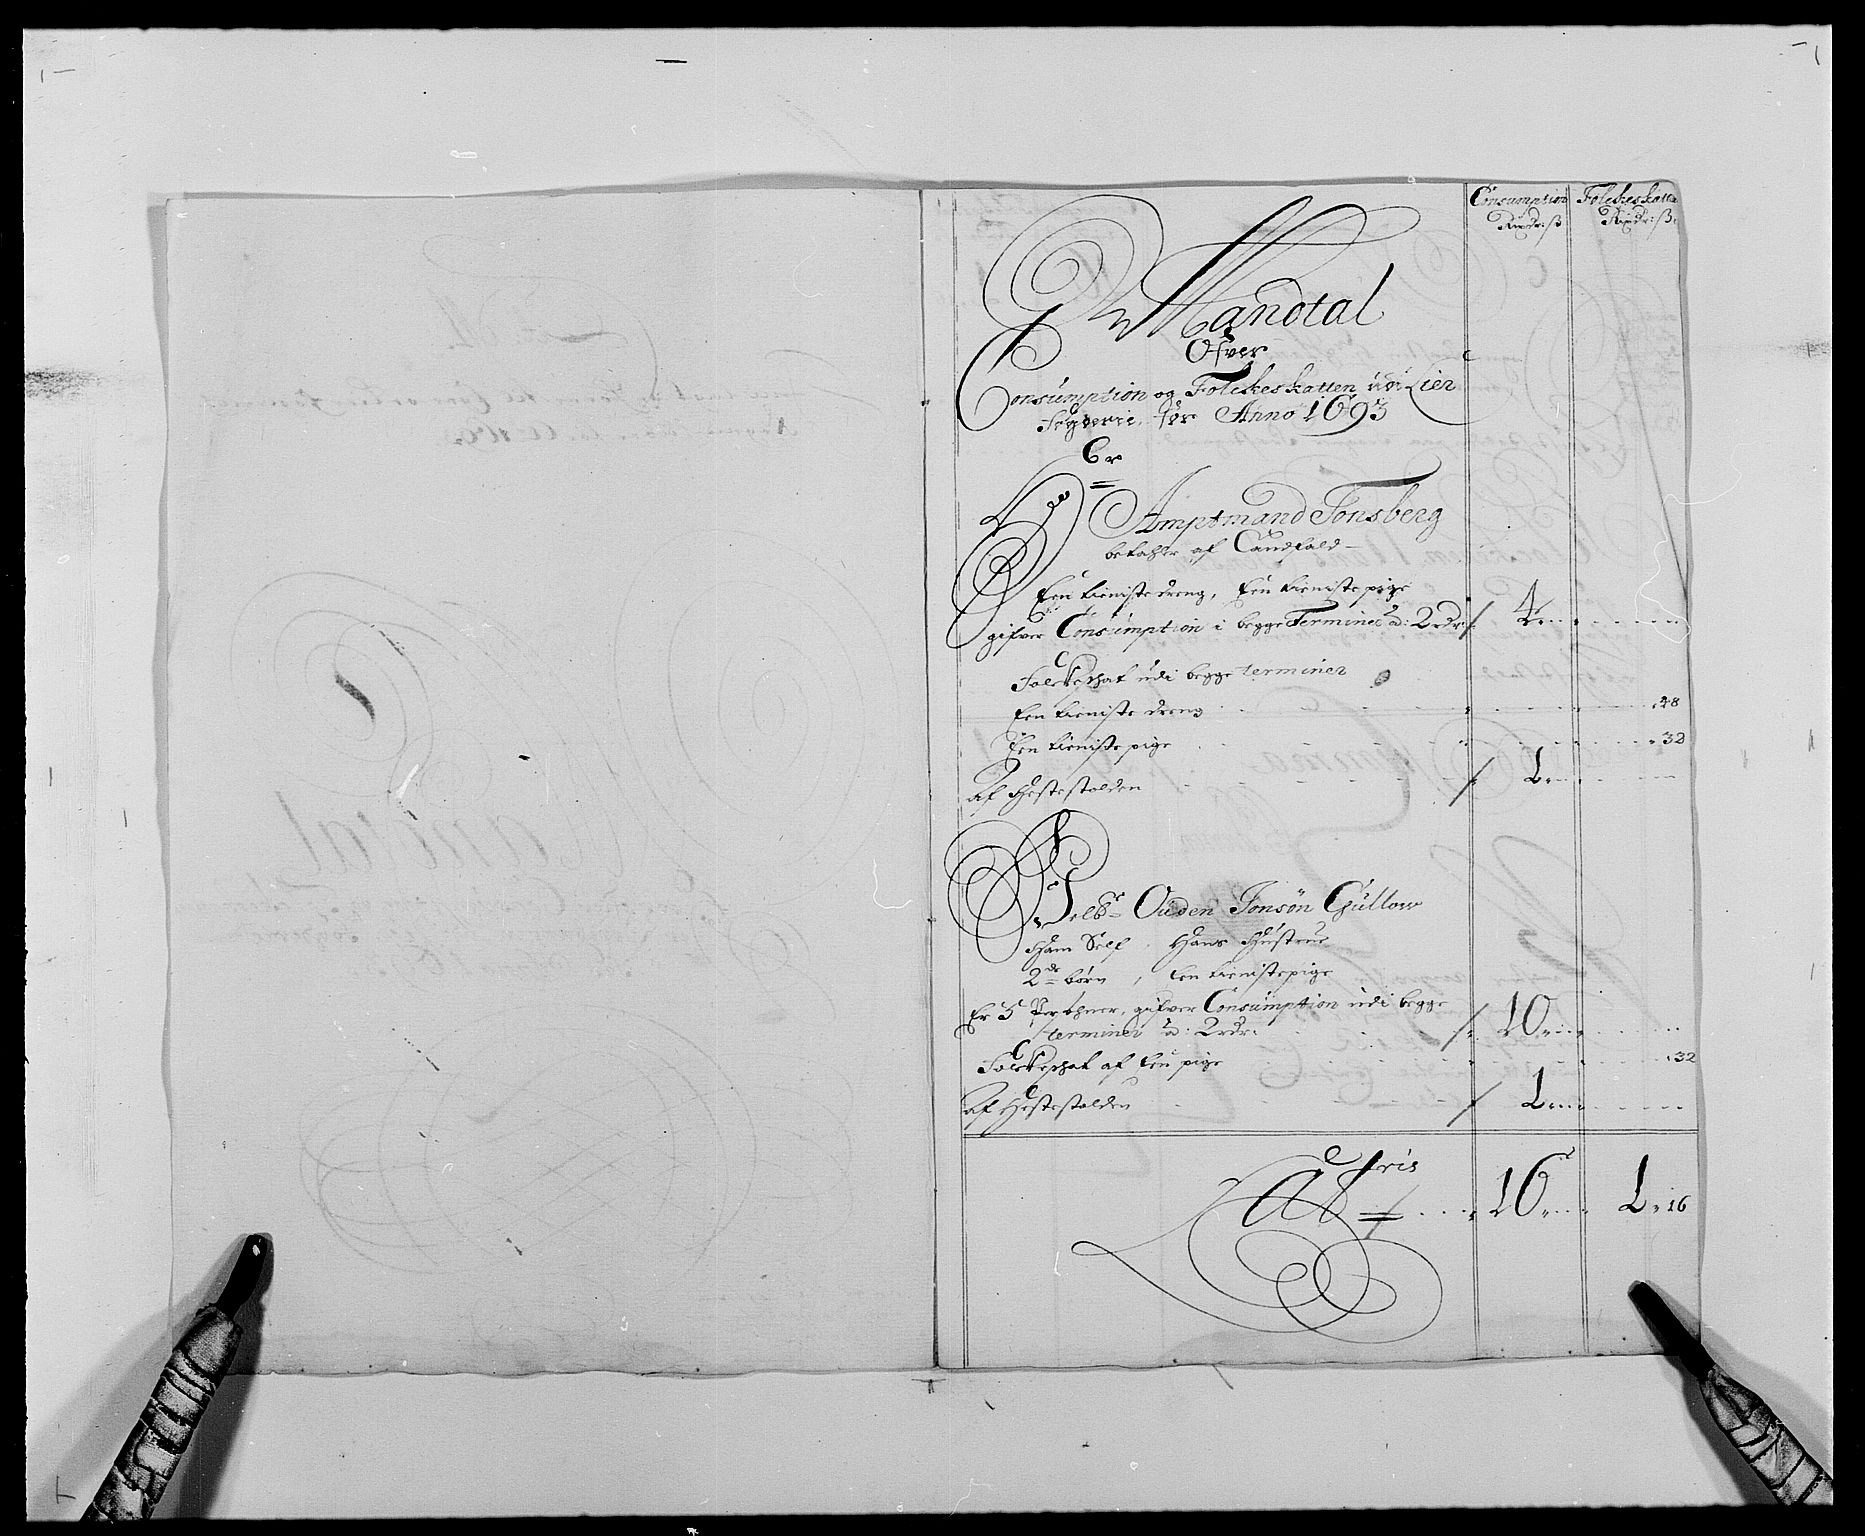 Consumption Folckeskatten
Rixdr: ß Rixdr: ß:
Mandtal
Ofver
Consumption og Folckeskatten udi Lier
Fogderie for Anno 1693
Er
Hr Amptmand Tonsberg
betahler af
Een tieniste dreng, Een tieniste pige
gifver Consumption i begge Terminer â: 2 rdr: / 4
Folckeschat udi begge terminer
Een tieniste dreng 48
Een tieniste pige 32
Af Hestestolden / 1
Ouden Jonsøn Gullow
Ham Self, Hans Hustrue
2de børn, Een tienistepige
Er 5 Persohner, gifver Consumption udi begge
terminer â: 2 rdr: / 10
Folckeschat af Een pige 32
Af Hestestolden / 1
16 1 16